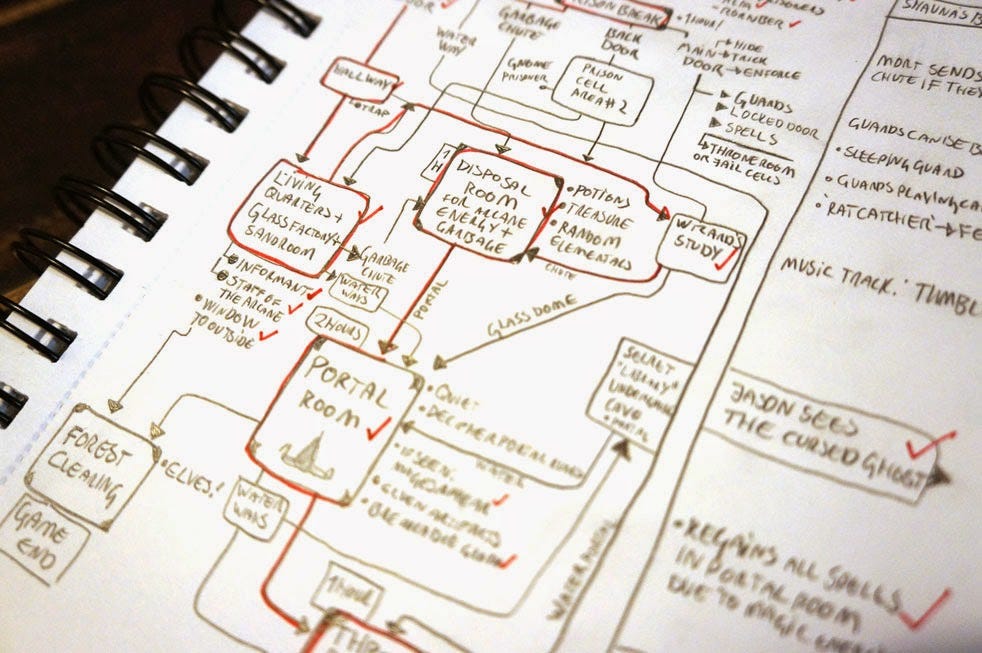 DOOR
GARBAGE
CHUTE
PRISON BREAK
1 HOUR!
WATER
WAY
BACK
DOOR
MAIN
DOOR
HIDE
TRICK
ENFORCE
HALLWAY
TRAP
GNOME
PRISONER
PRISON
CELL
AREA #2
GUARDS
LOCKED DOOR
SPELLS
THRONE ROOM
OR JAIL CELLS
LIVING
QUARTERS +
GLASS FACTORY +
SANDROOM
1
H
DISPOSAL
ROOM
FOR ARCANE
ENERGY +
GARBAGE
• POTIONS
• TREASURE
• RANDOM
ELEMENTALS
WIZARD'S
STUDY
CHUTE
GARBAGE
CHUTE
WATER
WAYS
• INFORMANT
• STAFF OF
THE ARCANE
• WINDOW
TO OUTSIDE
PORTAL
GLASS DOME
2 HOURS
PORTAL
ROOM
• QUIET
• DECIPHER PORTAL
WATER
• IF SEEN:
• ELVEN ARTIFACTS
SECRET
"LIBRARY"
CAVE
• PORTAL
FOREST
CLEARING
• ELVES!
GAME
END
WATER
WAYS
1 HOUR
SHAUNA'S
MORT SENDS
CHUTE IF THEY
GUARDS CAN BE
• SLEEPING GUARD
• GUARDS PLAYING
• 'RATCATCHER'
MUSIC TRACK:
JASON SEES
THE CURSED GHOST
• REGAINS ALL SPELLS
IN PORTAL ROOM
DUE TO MAGIC